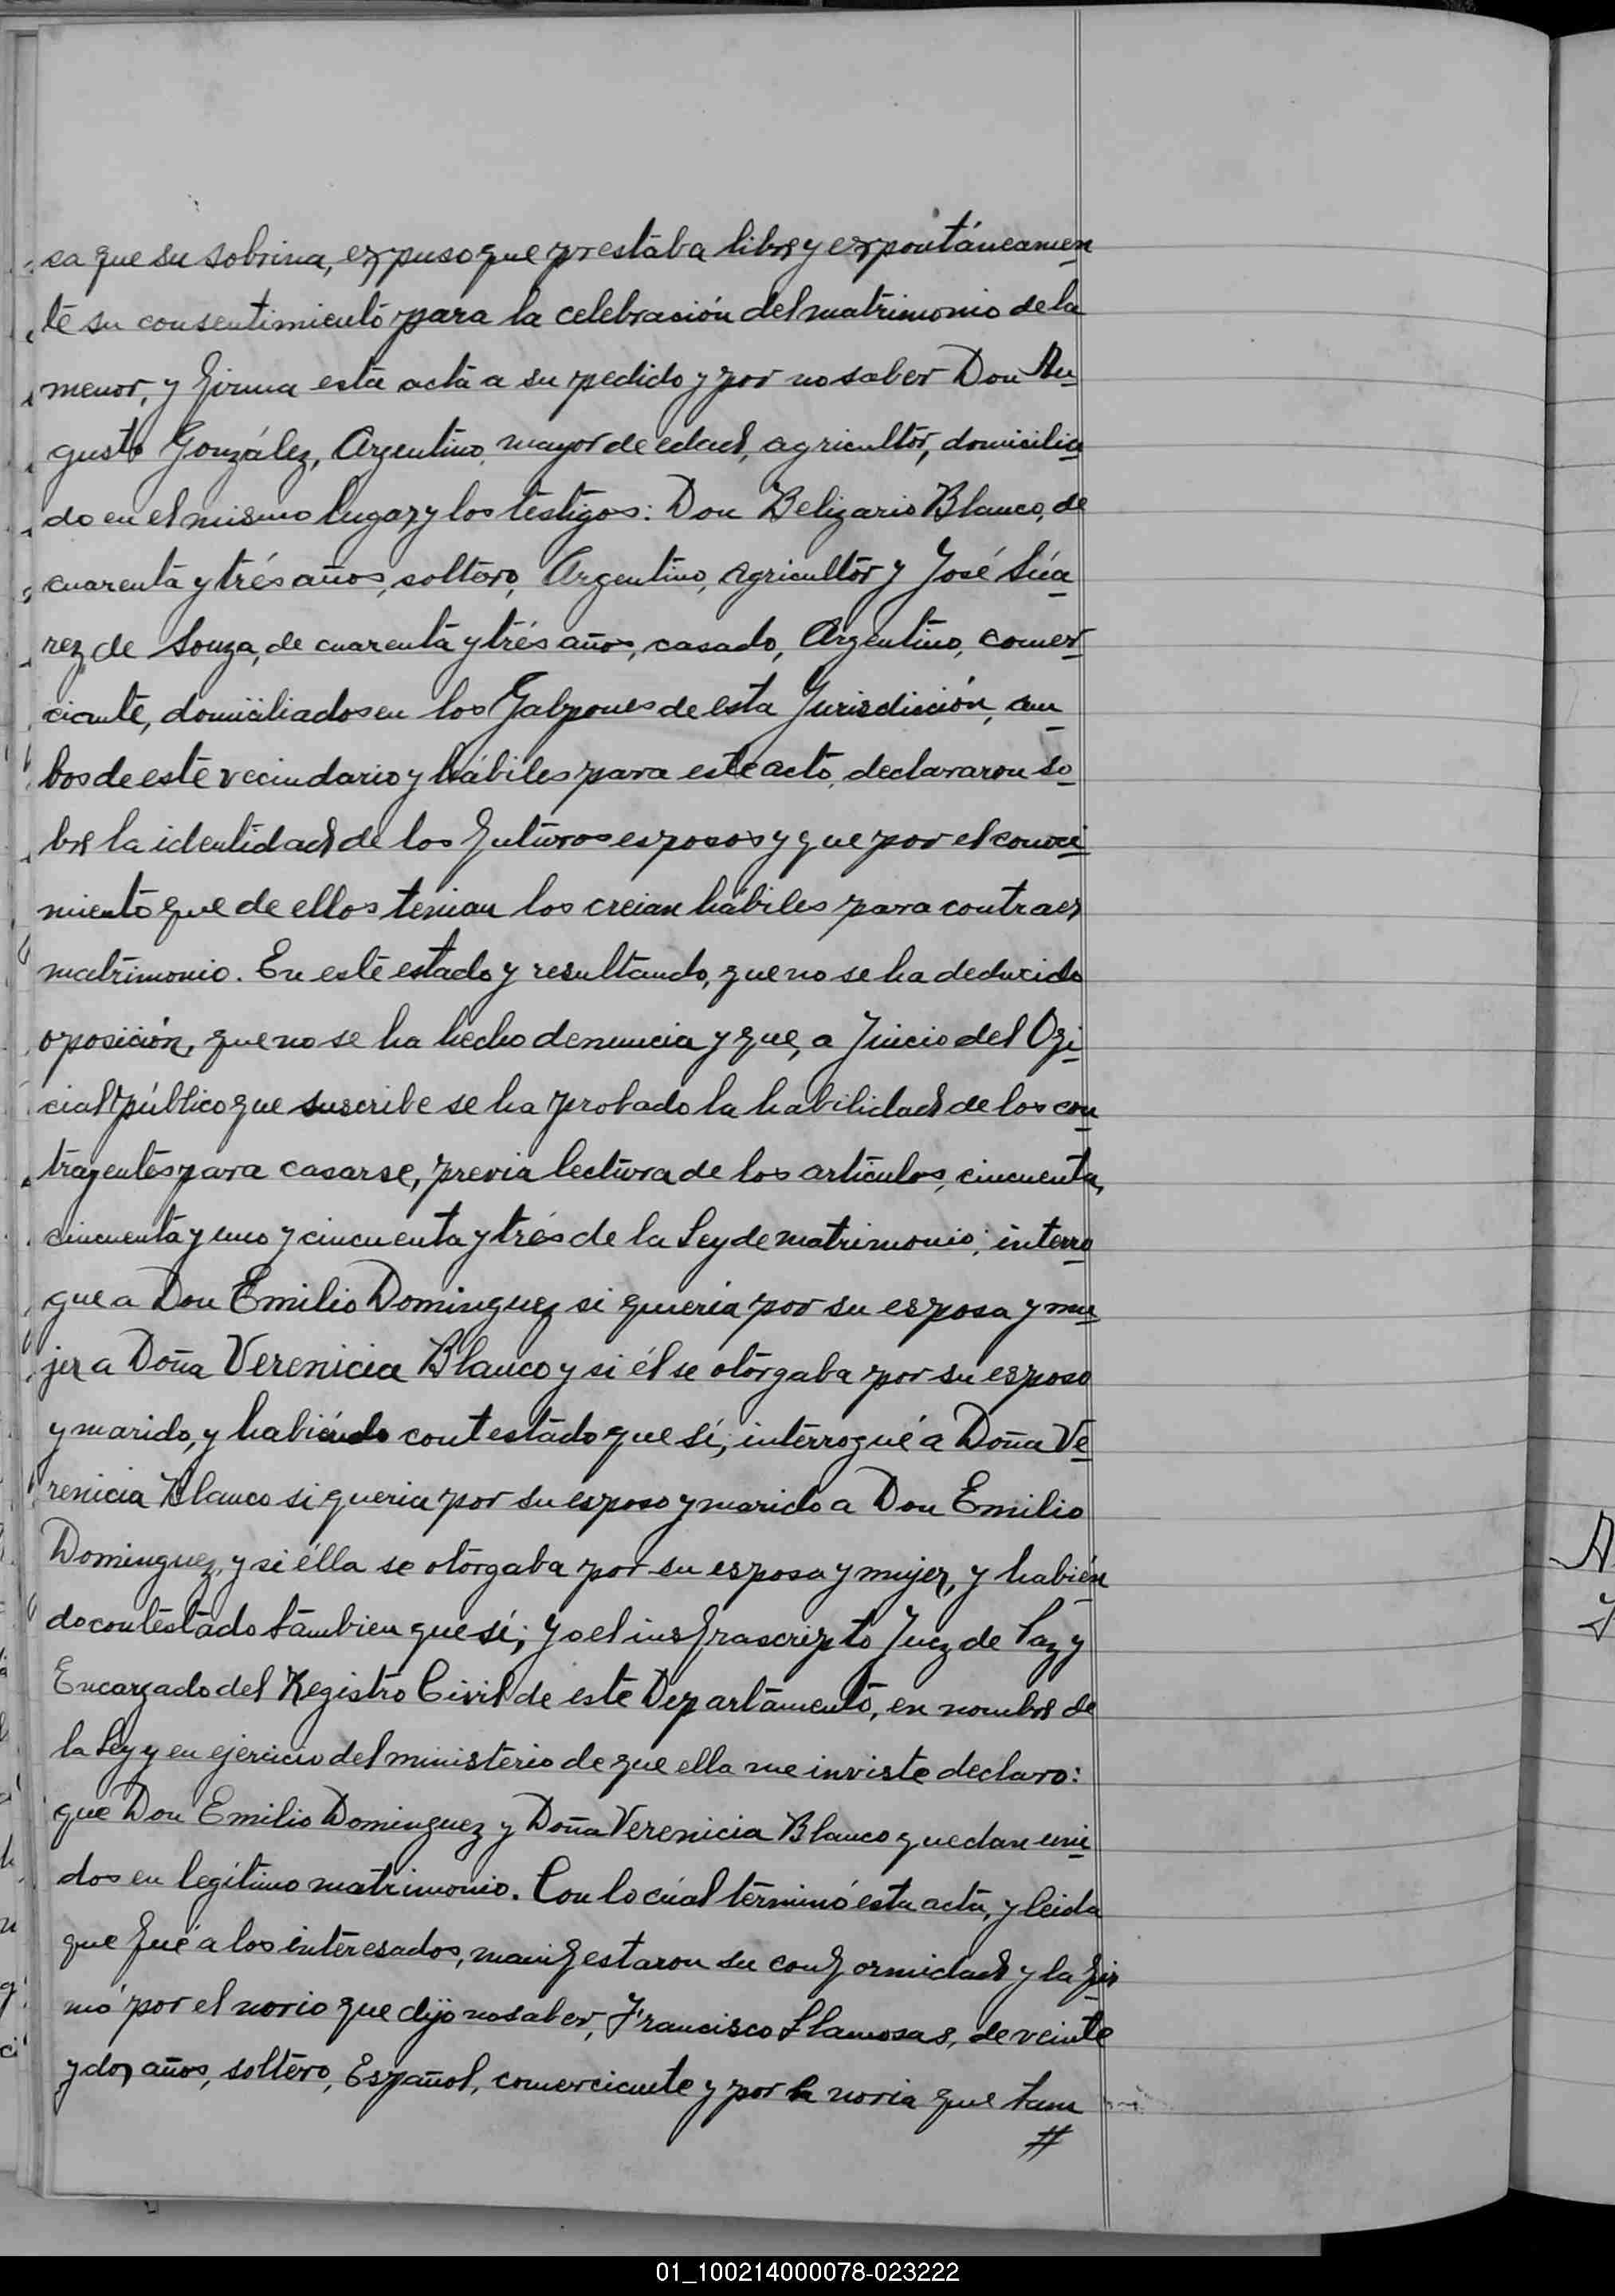 ca que su sobrina, expuso que prestaba libre y expontáneamen
te su consentimiento para la celebración del matrimonio de la
menor, y firma esta acta a su pedido y por no saber Don Au
gusto González, Argentino, mayor de edad, agricultor, domicilia
do en el mismo lugar y los testigos: Don Belizario Blanco, de
cuarenta y trés años, soltero, Argentino, agricultor y José Súa
rez de Souza, de cuarenta y trés años, casado, Argentino, comer
ciante, domiciliados en los Galpones de esta Jurisdicción, am
bos de este vecindario y hábiles para este acto, declararon so
bre la identidad de los futuros esposos y que por el conoci
miento que de ellos tenian los creian hábiles para contraer
matrimonio. En este estado y resultando, que no se ha deducido
oposición, que no se ha hecho denuncia y que, a Juicio del Ofi
cial público que suscribe se ha probado la habilidad de los con
trayentes para casarse, previa lectura de los artículos, cincuenta,
cincuenta y uno y cincuenta y trés de la Ley de matrimonio; interro
gue a Don Emilio Dominguez si queria por su esposa y mu
jer a Doña Verenicia Blanco y si él se otorgaba por su esposo
y marido, y habiéndo contestado que sí; interrogué a Doña Ve
renicia Blanco si queria por su esposo y marido a Don Emilio
Dominguez, y si élla se otorgaba por su esposa y mujer, y habién
do contestado tambien que sí; Yo el insfrascripto Juez de Paz y
Encargado del Registro Civil de este Departamento, en nombre de
la Ley y en ejercicio del ministerio de que ella me inviste declaro:
que Don Emilio Dominguez y Doña Verenicia Blanco quedan uni
dos en legítimo matrimonio. Con lo cúal terminó esta acta, y leida
que fué a los interesados, manifestaron su conformidad y la fir
mó por el novio que dijo no saber, Francisco Llamosas, de veinte
y dos años, soltero, Español, comerciante y por la novia que tam
#
01_100214000078-023222